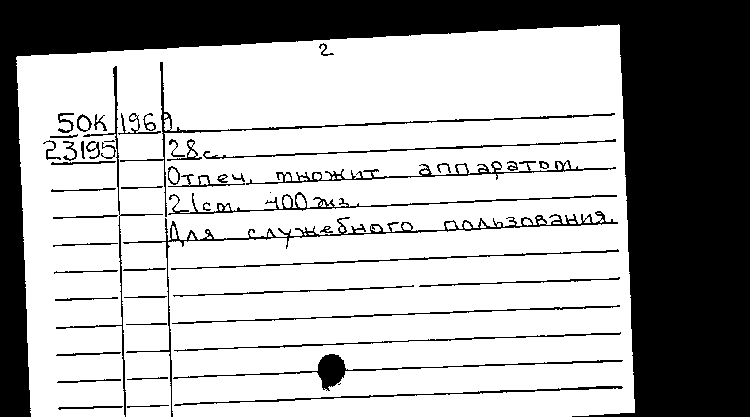 2
50К 1969.
23195 28с.
Отпеч. множит аппаратом.
21см. 400 экз.
Для служебного пользования.